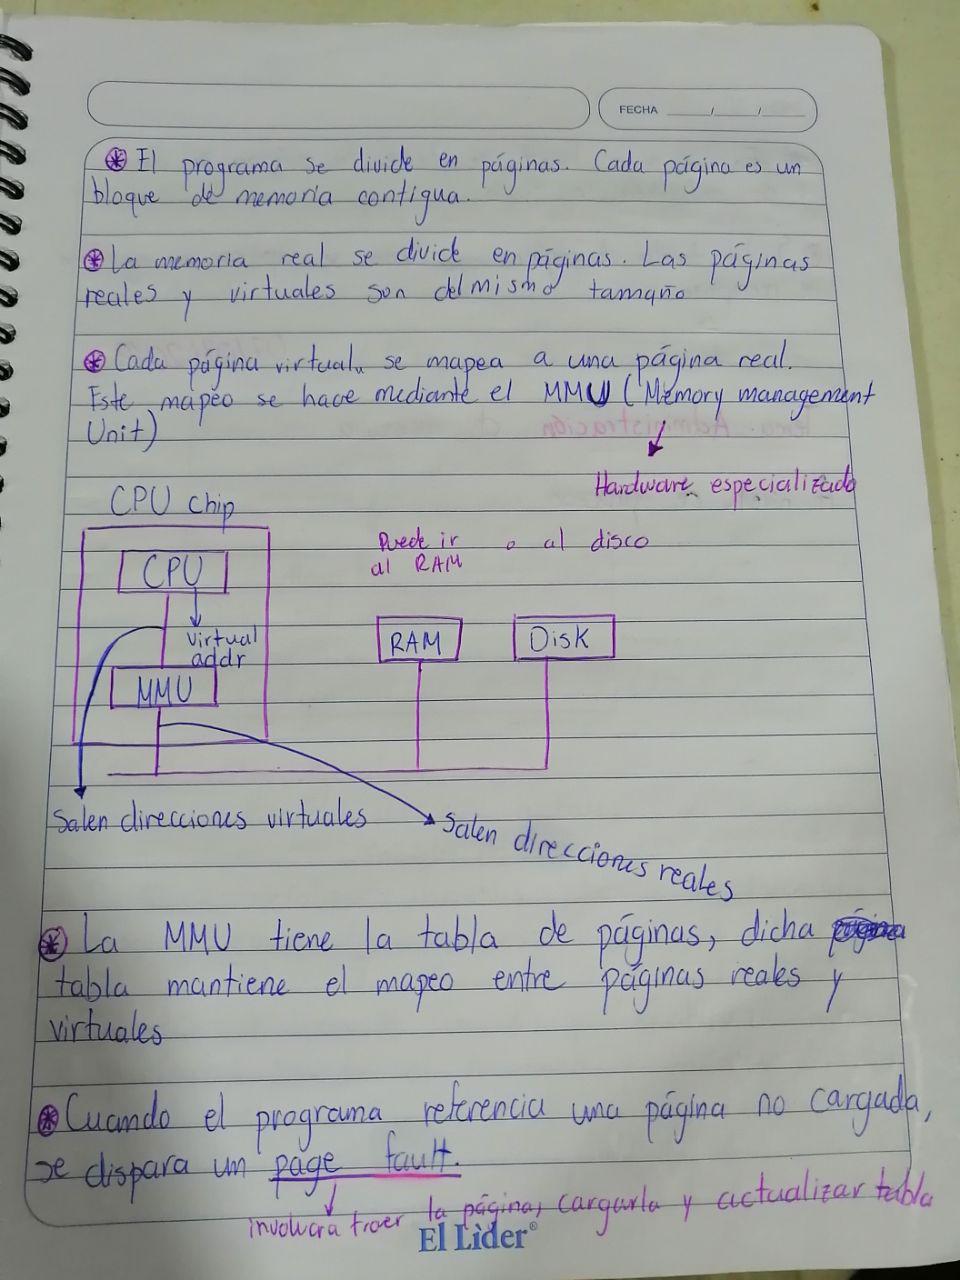 FECHA ___/___/___
⊛ El programa se divide en páginas. Cada página es un
bloque de memoria contigua.
⊛ La memoria real se divide en páginas. Las páginas
reales y virtuales son del mismo tamaño
⊛ Cada página virtual se mapea a una página real.
Este mapeo se hace mediante el MMU (Memory management
Unit)
Hardware especializado
CPU chip
Puede ir o al disco
al RAM
CPU
virtual
addr
MMU
RAM
Disk
Salen direcciones virtuales
Salen direcciones reales
⊛ La MMU tiene la tabla de páginas, dicha
tabla mantiene el mapeo entre páginas reales y
virtuales
⊛ Cuando el programa referencia una página no cargada,
se dispara un page fault.
involucra traer la página, cargarla y actualizar tabla
El Lider®